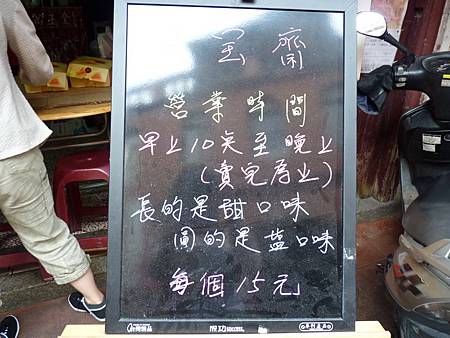 全齋
營業時間
早上10矣至晚上
(賣完為止)
長的是甜口味
圓的是盐口味
每個15元
成功 SUCCESS.